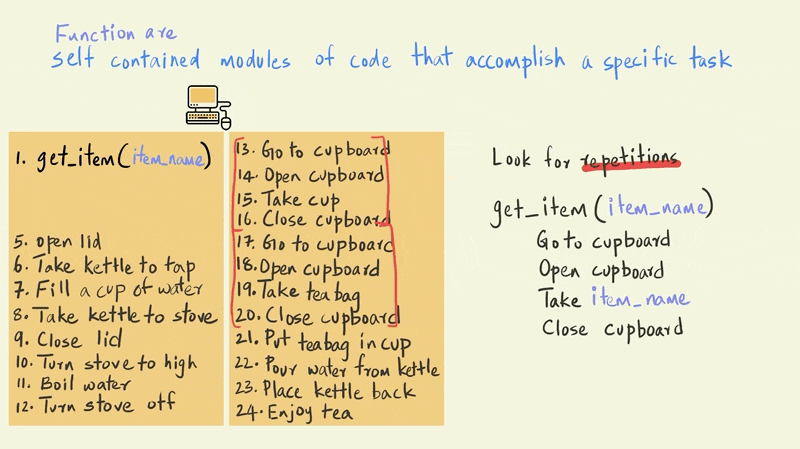 Function are
self contained modules of code that accomplish a specific task
1. get_item(item_name)
5. open lid
6. Take kettle to tap
7. Fill a cup of water
8. Take kettle to stove
9. Close lid
10. Turn stove to high
11. Boil water
12. Turn stove off
13. Go to cupboard
14. Open cupboard
15. Take cup
16. Close cupboard
17. Go to cupboard
18. Open cupboard
19. Take teabag
20. Close cupboard
21. Put teabag in cup
22. Pour water from kettle
23. Place kettle back
24. Enjoy tea
Look for repetitions
get_item(item_name)
Go to cupboard
Open cupboard
Take item_name
Close cupboard